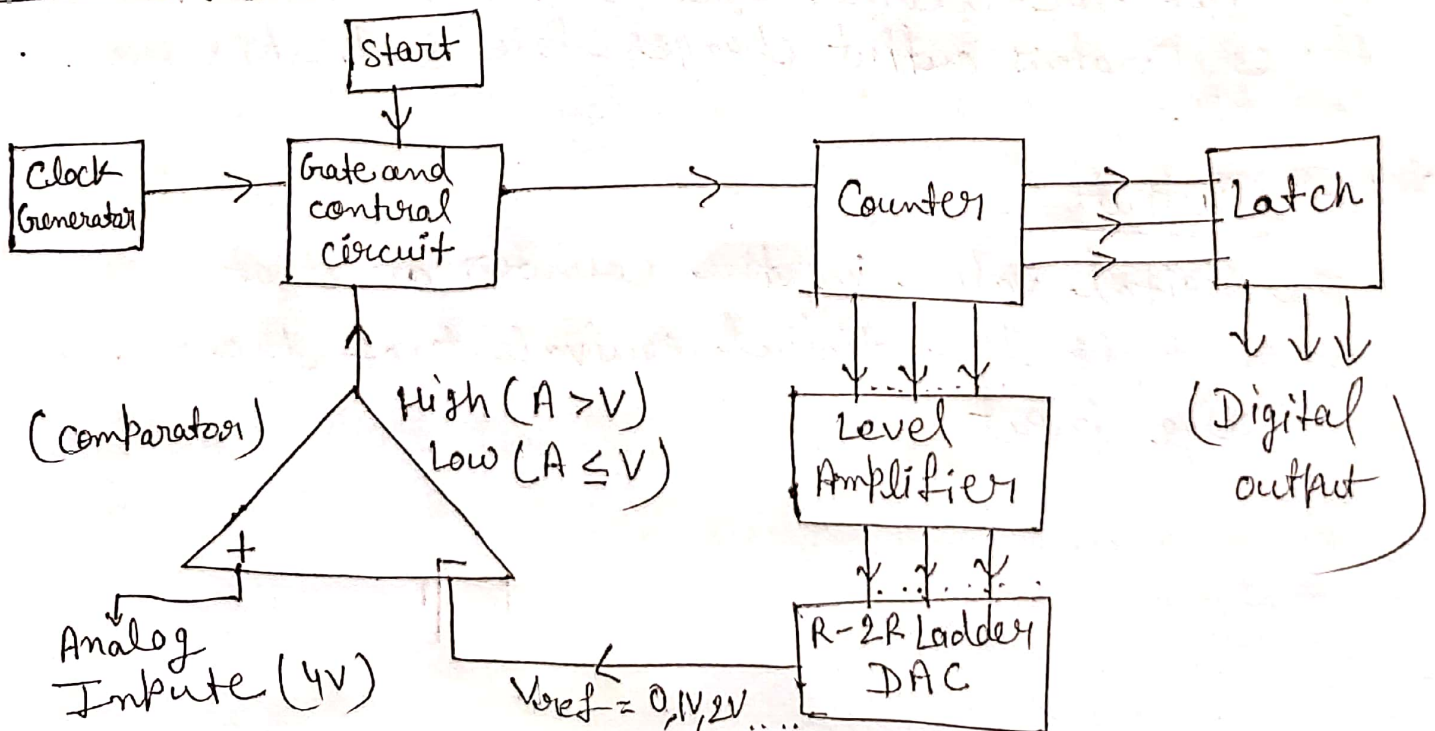 Start
Clock
Generator
Gate and
control
circuit
Counter
Latch
(Comparator)
High (A > V)
Low (A ≤ V)
Level
Amplifier
(Digital
output
)
+
-
Analog
Inpute (4V)
R-2R Ladder
DAC
Vref = 0,1V,2V....